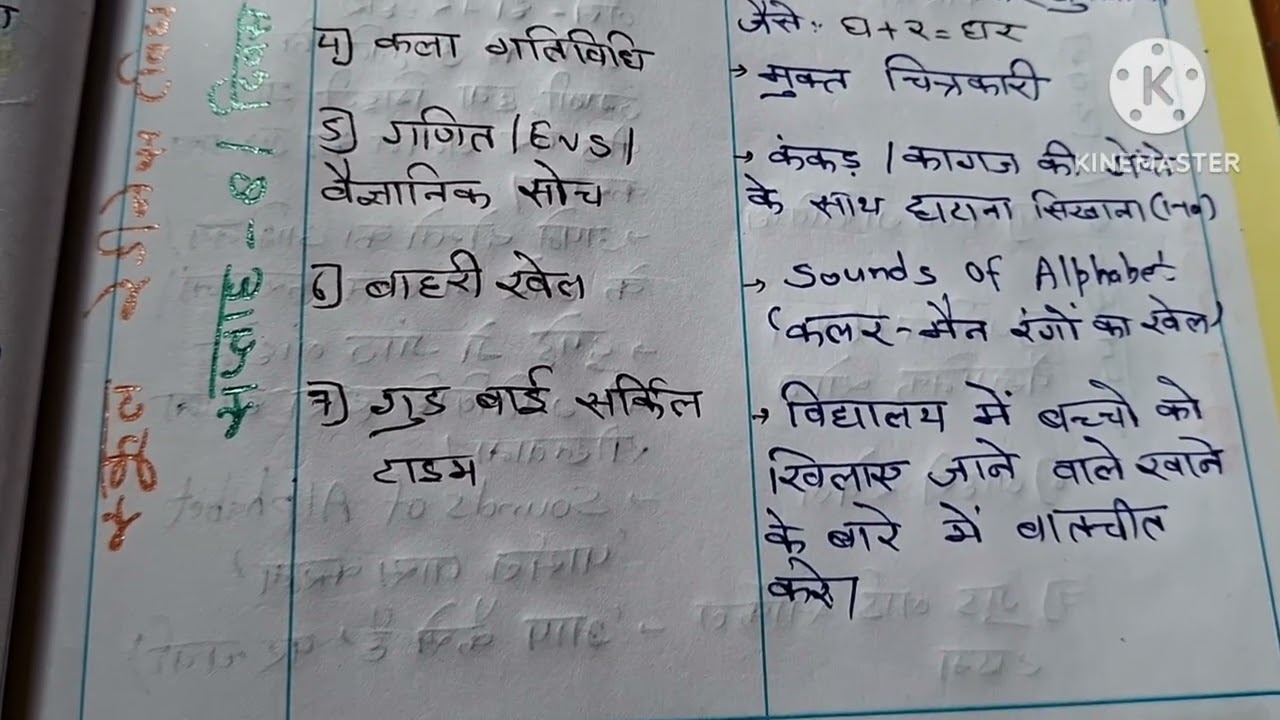 जैसे:- घ+र=घर
4) कला गतिविधि
→ मुक्त चित्रकारी
5) गणित / EVS /
वैज्ञानिक सोच
→ कंकड़ / कागज की
के साथ घटाना सिखाना (1-9)
6) बाहरी खेल
→ Sounds of Alphabet
(कलर-मैन रंगों का खेल)
7) गुड बाई सर्किल
टाइम
→ विद्यालय में बच्चो को
खिलाए जाने वाले खाने
के बारे में बातचीत
करे।
स्कूल रेडीनेस
सप्ताह-8 / दिवस
K
KINEMASTER